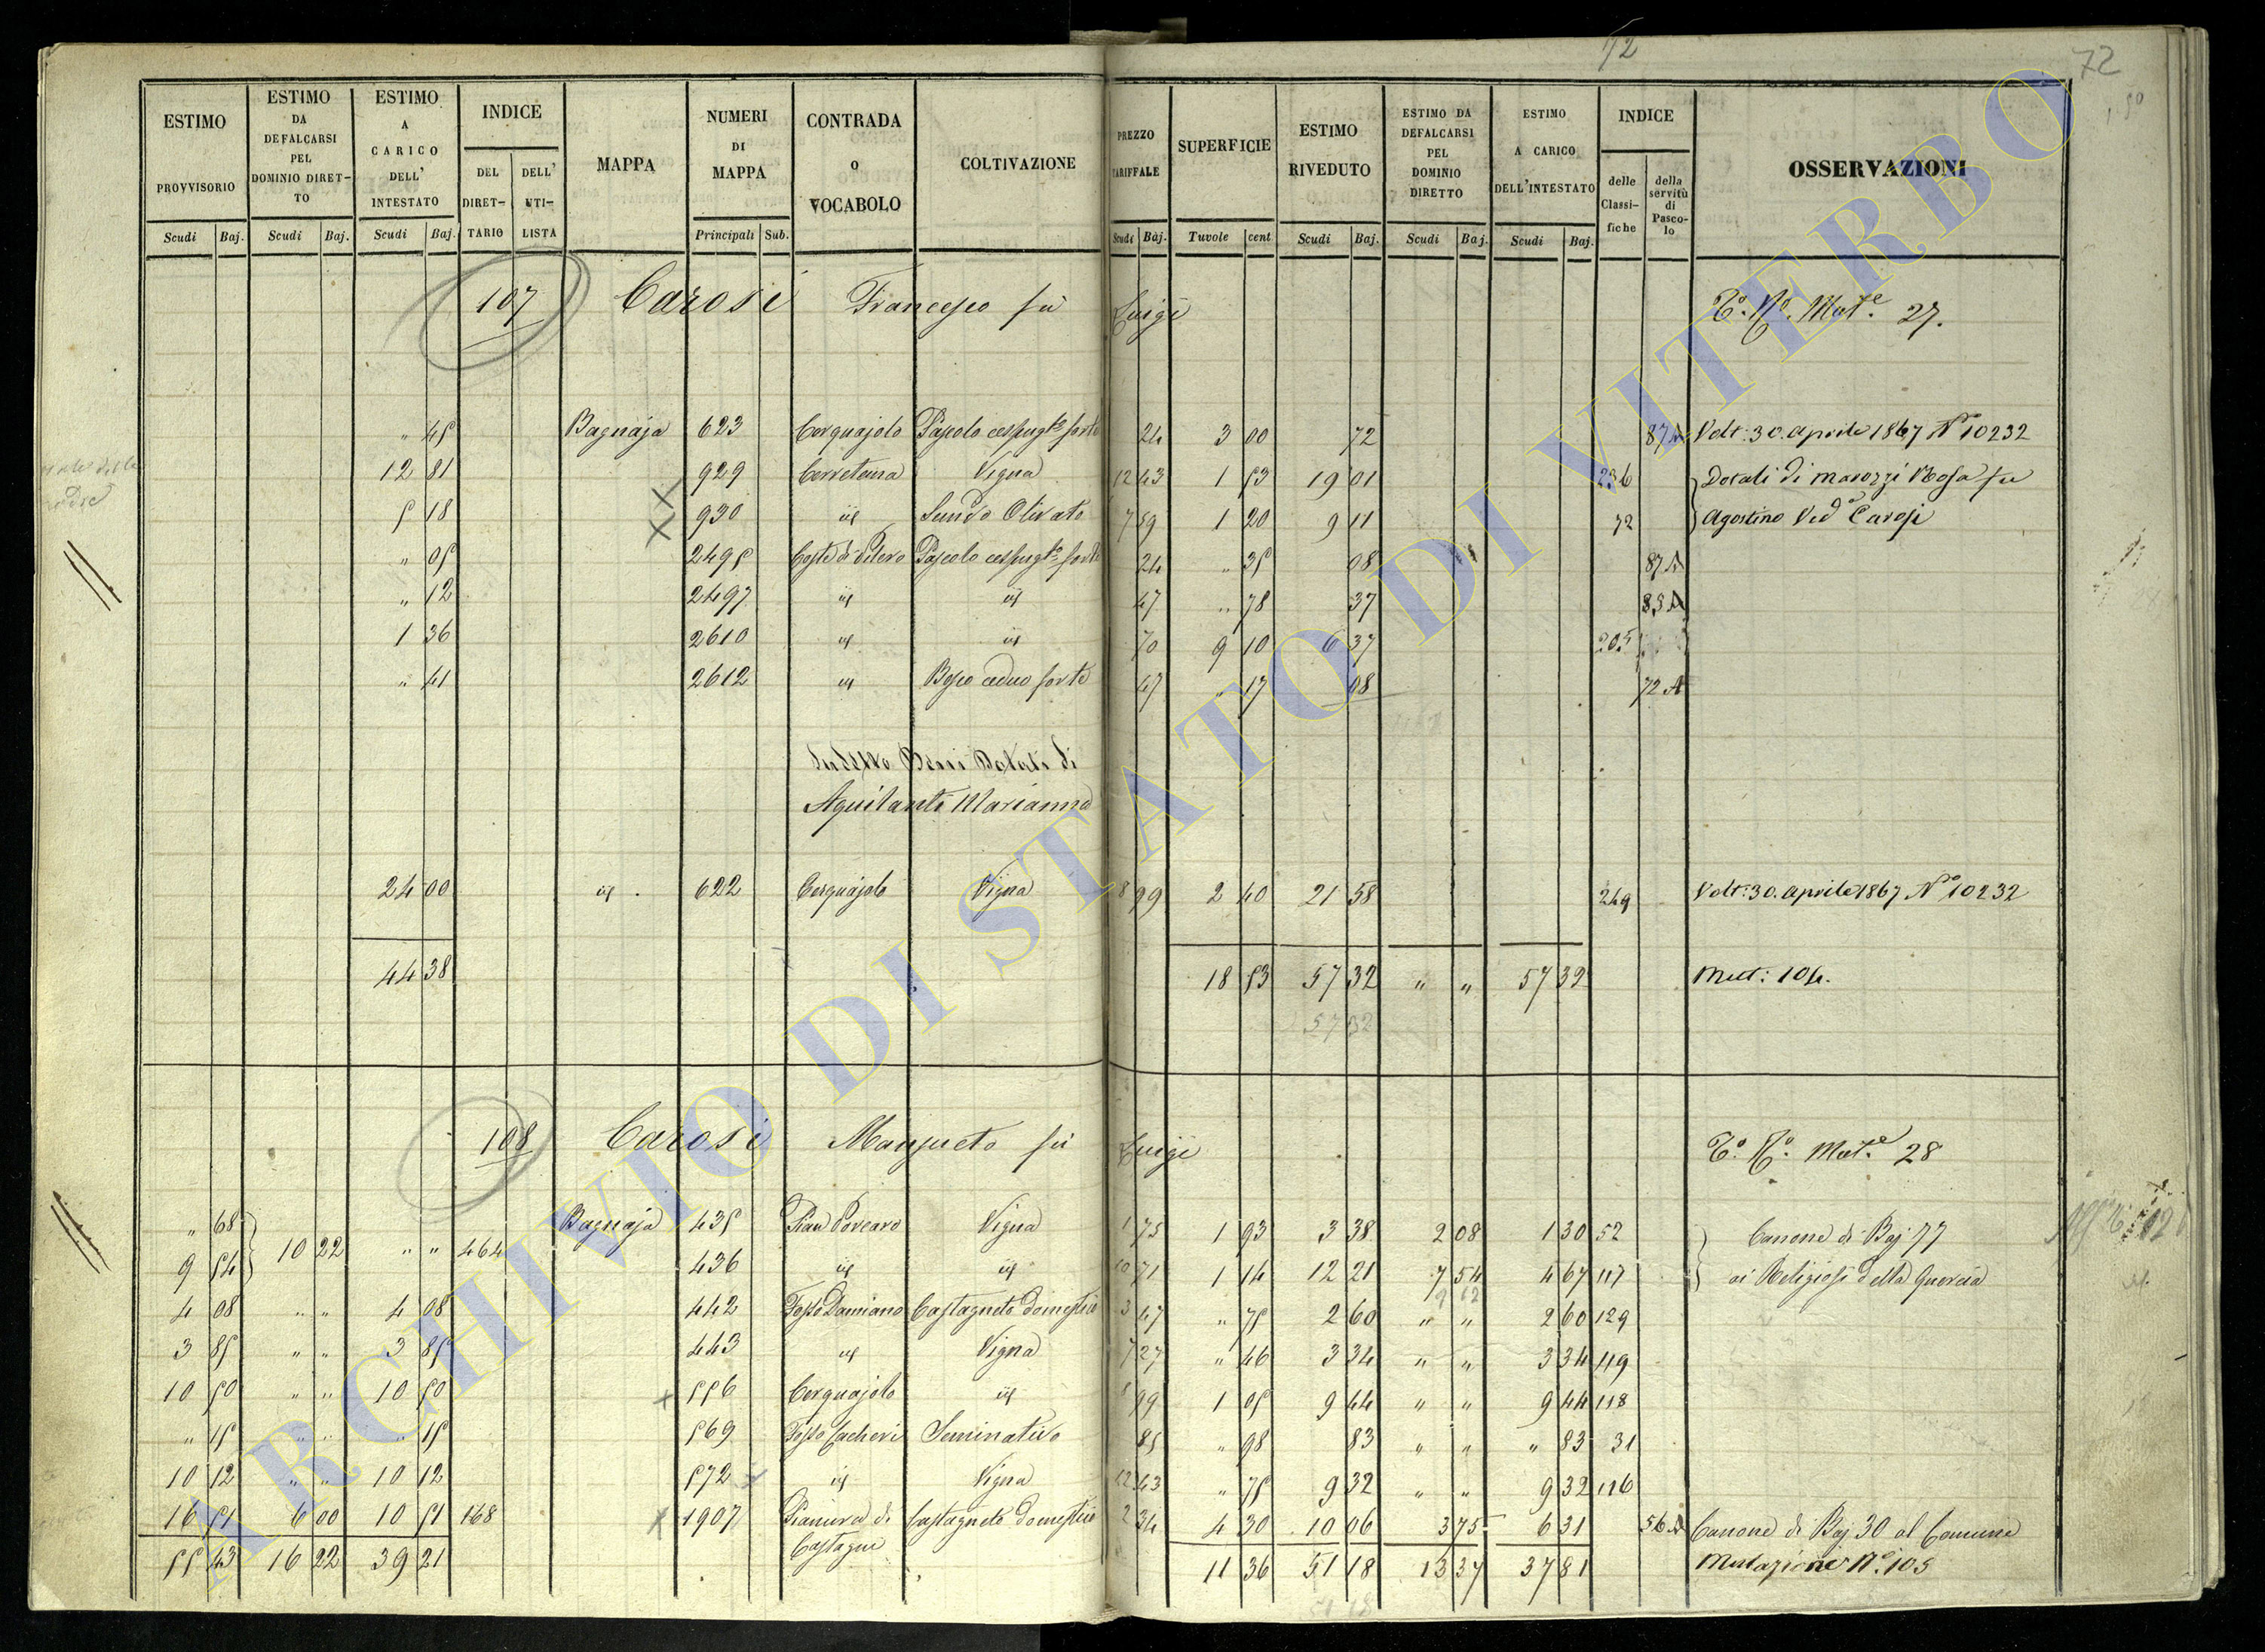 72
72
ESTIMO PROVVISORIO Scudi Baj.
ESTIMO DA DEFALCARSI PEL DOMINIO DIRET-TO Scudi Baj.
ESTIMO A CARICO DELL' INTESTATO Scudi Baj.
INDICE DEL DIRET-TARIO DELL' UTI-LISTA
MAPPA
NUMERI DI MAPPA Principali Sub.
CONTRADA O VOCABOLO
COLTIVAZIONE
PREZZO TARIFFALE Scudi Baj.
SUPERFICIE Tavole cent
ESTIMO RIVEDUTO Scudi Baj.
ESTIMO DA DEFALCARSI PEL DOMINIO DIRETTO Scudi Baj.
ESTIMO A CARICO DELL'INTESTATO Scudi Baj.
INDICE delle Classi-fiche della servitù di Pasco-lo
OSSERVAZIONI
107 Carosi Francesco fù Luigi T.º N.º Mut.e 27.
" 45 Bagnaja 623 Cerquajolo Pascolo cespugto forte 24 3 00 72 87 A Volt: 30. aprile 1867 Nº 10232
12 81 929 Corretana Vigna 12 43 1 53 19 01 236 Dotali di Marozzi Rosa fu
5 18 930 id Sundo Olivato 7 59 1 20 9 11 72 Agostino Vedª Carosi
" 05 2495 Coste di Pilero Pascolo cespugto forte 24 " 35 08 87 A
" 12 2497 id id 47 " 78 37 85 A
1 36 2610 id id 70 9 10 6 37 205
" 41 2612 id Bosco ceduo forte 47 " 17 08 72 A
Suddetto Beni Dotali di
Aquilanti Marianna
24 00 id 622 Cerquajolo Vigna 8 99 2 40 21 58 249 Volt: 30. aprile 1867 Nº 10232
44 38 18 53 57 32 " " 57 32 Mut: 104.
57 32
108 Carosi Mansueto fù Luigi T.º N.º Mut.e 28
" 68 10 22 " " 464 Bagnaja 435 Pian Porcaro Vigna 1 75 1 93 3 38 2 08 1 30 52 Canone di Baj 77
9 54 436 id id 10 71 1 14 12 21 7 54 4 67 117 ai Religiosi della Quercia
9 62
4 08 " " 4 08 442 Fosso Damiano Castagneto domestico 3 47 " 75 2 60 " " 2 60 129
3 85 " " 3 85 443 id Vigna 7 27 " 46 3 34 " " 3 34 119
10 50 " " 10 50 556 Cerquajolo id 8 99 1 05 9 44 " " 9 44 118
" 15 " " " 15 569 Fosso Cacheri Seminativo 85 " 98 83 " " " 83 31
10 12 " " 10 12 572 id Vigna 12 43 " 75 9 32 " " 9 32 116
16 51 6 00 10 51 168 1907 Pianura di Castagneto domestico 2 34 4 30 10 06 3 75 6 31 56 A Canone di Baj 30 al Comune
Castagne
55 43 16 22 39 21 11 36 51 18 13 37 37 81 Mutazione Nº. 105
51 18
ARCHIVIO DI STATO DI VITERBO